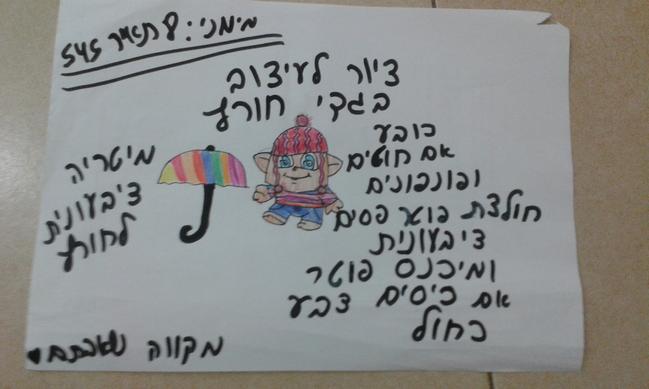 מימני:
ציור לעיצוב
בגדי חורף
כובע
אם חוטים
ופונפונים
חולצת פוטר פסים
ציבעונית
ומיכנס פוטר
אם כיסים צבע
כחול
מיטריה
ציבעונית
לחורף
מקווה שאהבתם ♥